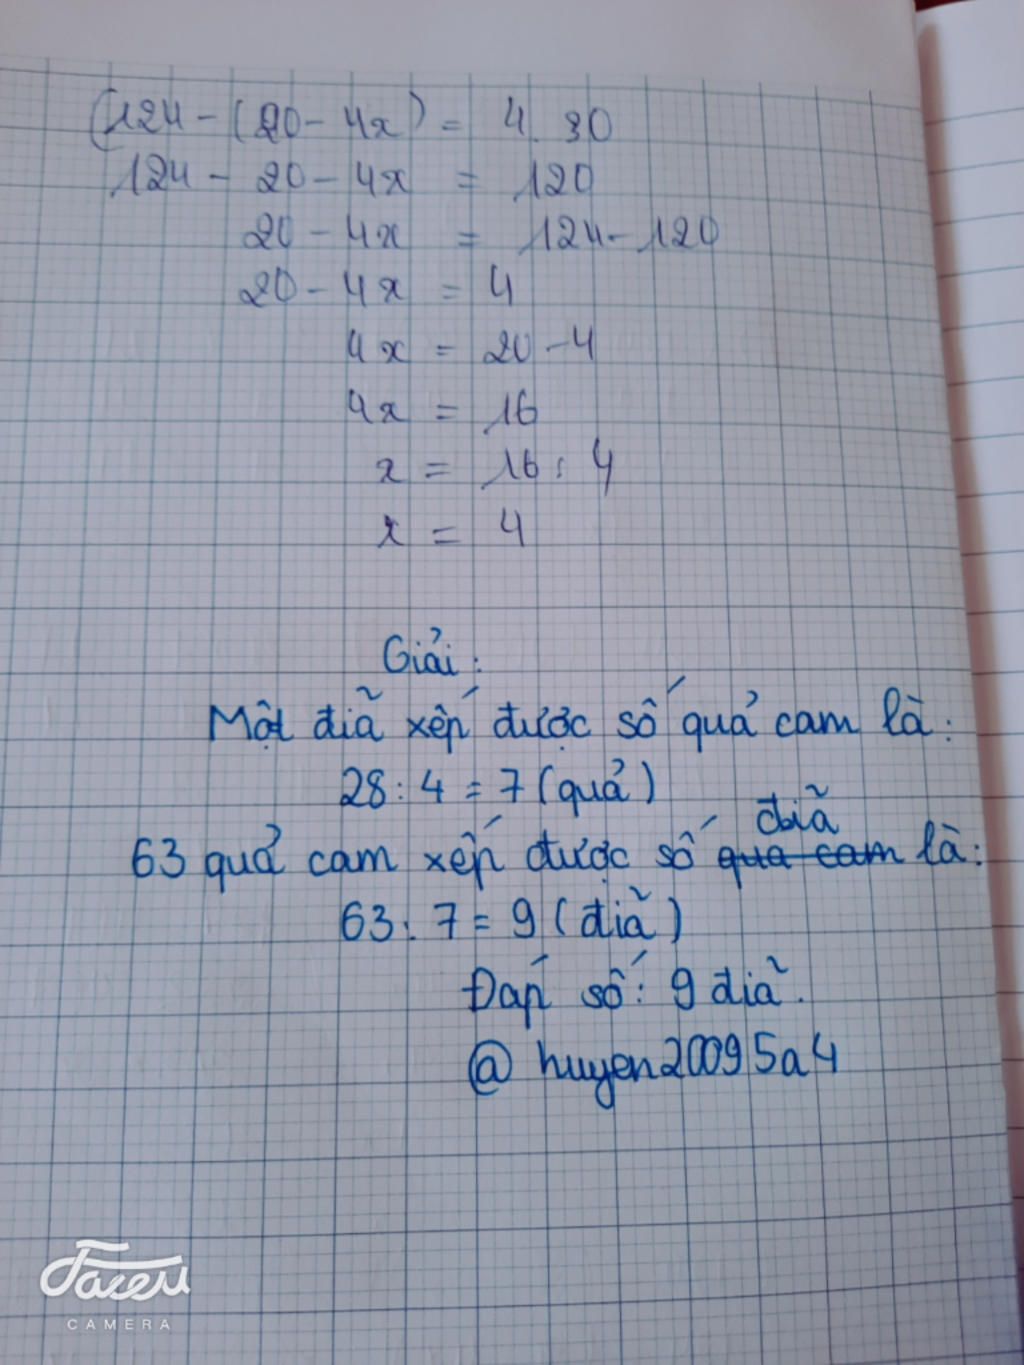 (124 - (20 - 4x) = 4. 30
124 - 20 - 4x = 120
20 - 4x = 124 - 120
20 - 4x = 4
4x = 20 - 4
4x = 16
x = 16 : 4
x = 4
Giải:
Một đĩa xếp được số quả cam là:
28 : 4 = 7 (quả)
đĩa
63 quả cam xếp được số qua cam là:
63 : 7 = 9 (đĩa)
Đáp số: 9 đĩa.
@ huyen20095a4
Gasem
CAMERA